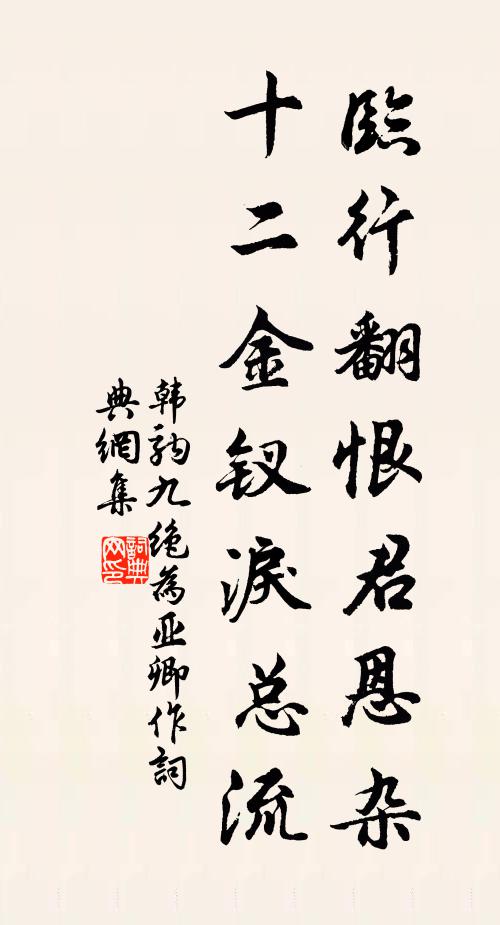 臨行翻恨君恩杂
十二金钗淚总流
韩駒九绝為亚卿作詞
典網集
詞典网印